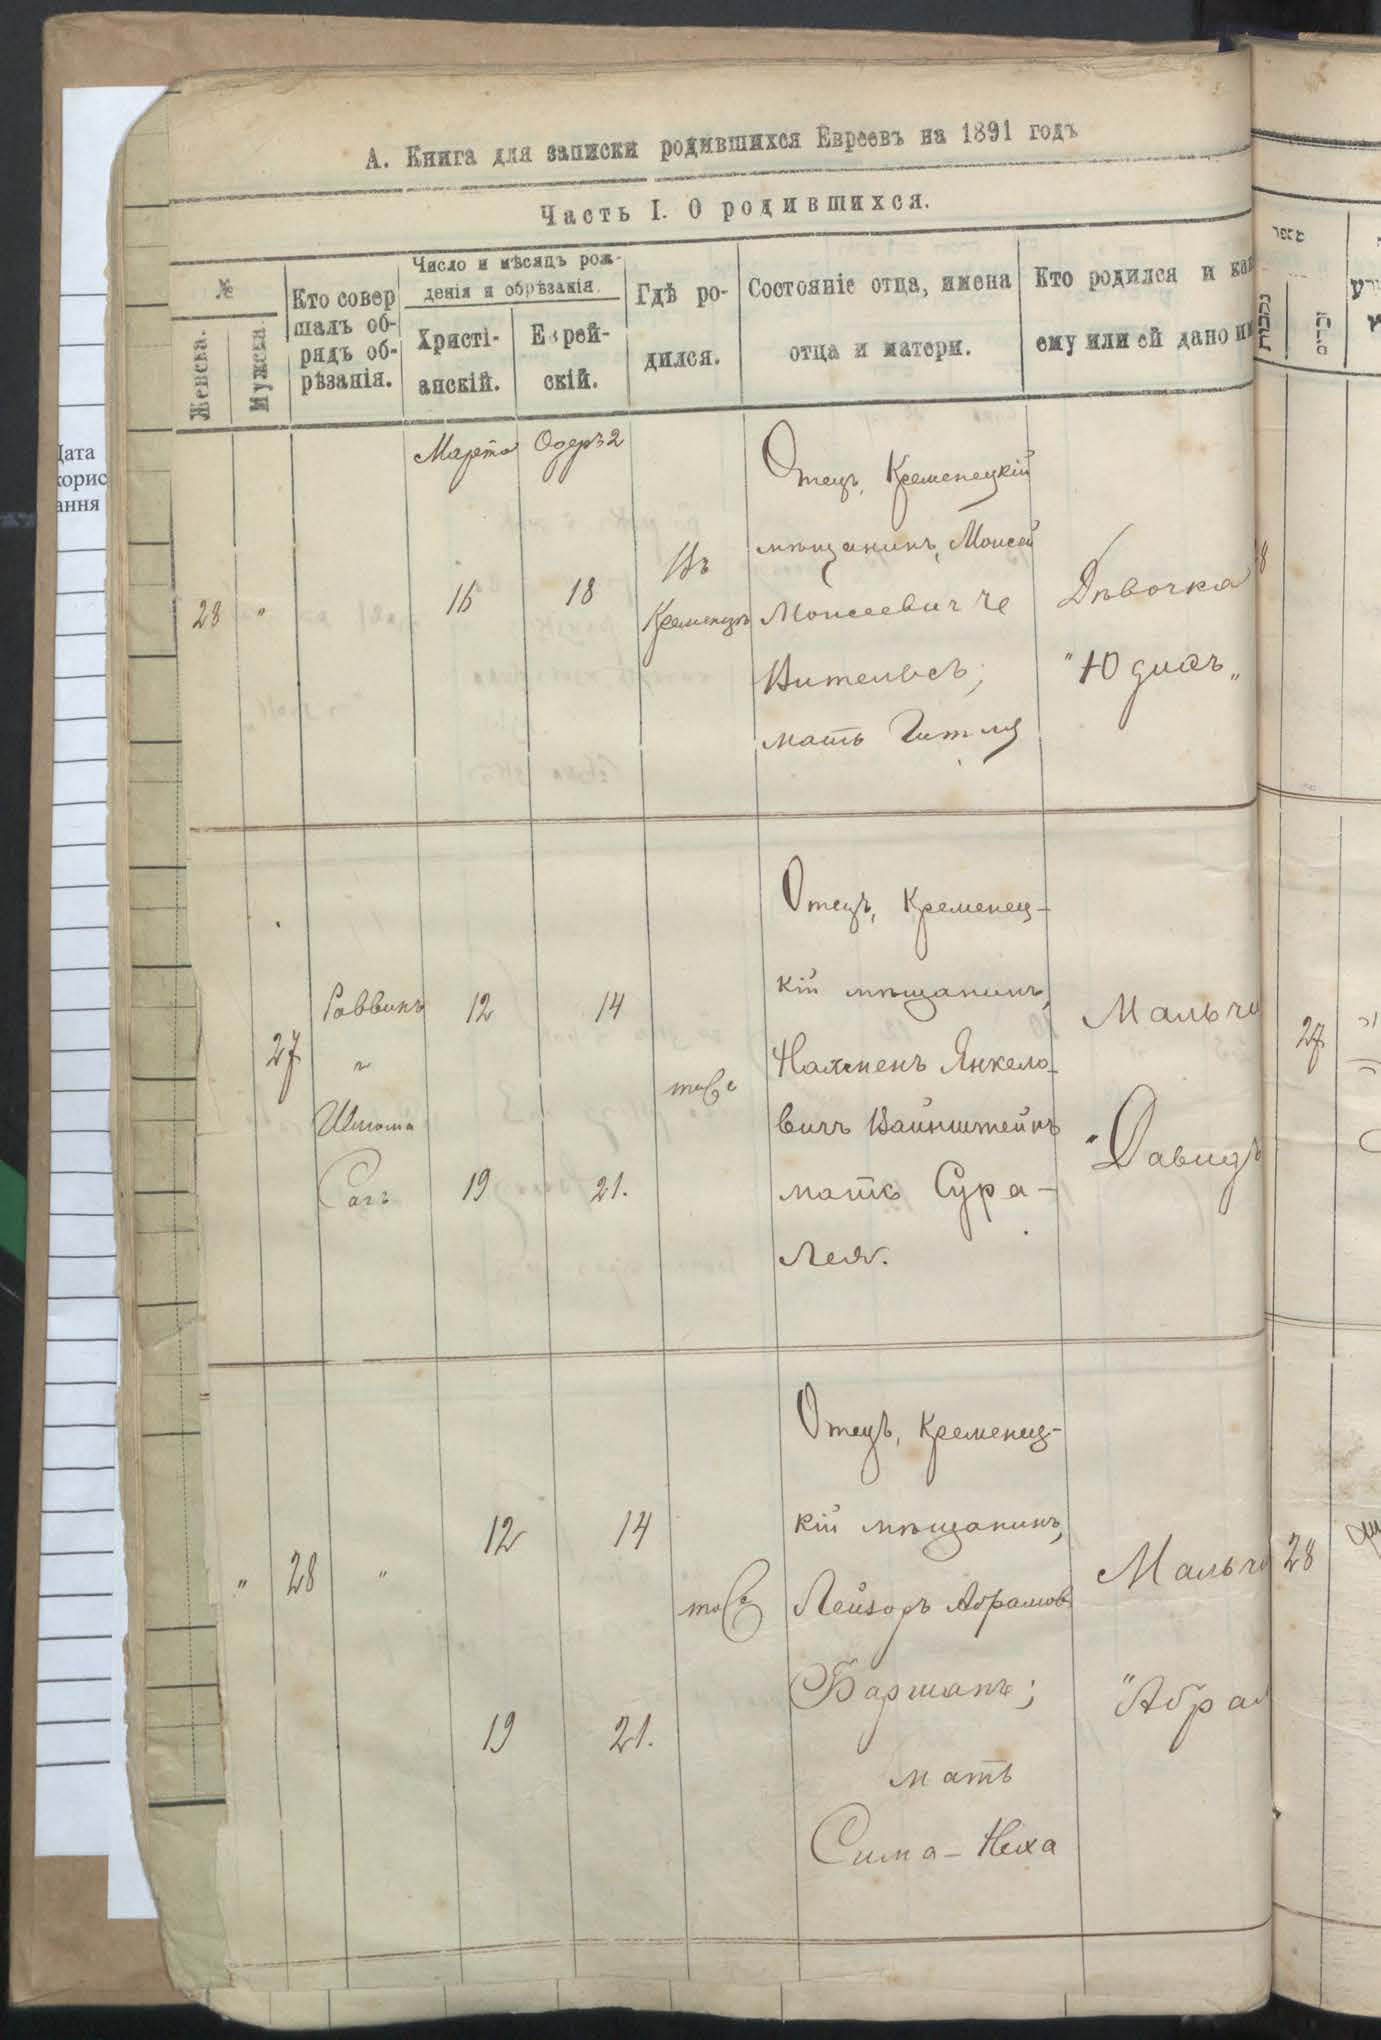 А. Книга для записки родившихся Евреевъ на 1891 годъ
Часть I. О родившихся.
№
Женска.
Мужска
Кто совер
шалъ об-
рядъ об-
рѣзанія.
Число и мѣсяцъ рож-
денія и обрѣзанія.
Христі-
анскій.
Еврей-
скій.
Гдѣ ро-
дился.
Состояніе отца, имена
отца и матери.
Кто родился и как
ему или ей дано им
מספר
נקבות
זכרים
Дата
корис
ання
Марта
Одеръ 2
28
"
16
18
Въ
Кременцѣ
Отецъ, Кременецкій
мѣщанинъ, Моисей
Моисеевич
мать Гитля
Дѣвочка
27
Раввинъ
Шлома
12
14
19
21.
тоже
Отецъ, Кременец-
кій мѣщанинъ,
Нахменъ Янкело-
вичъ Вайнштейнъ
мать Сура-
Лея.
Мальчи
"Давидъ
27
"
28
"
12
14
19
21.
тоже
Отецъ, Кременец-
кій мѣщанинъ,
Лейзоръ Абрамов
мать
Сима-Неха
Мальчи
"Абрам
28